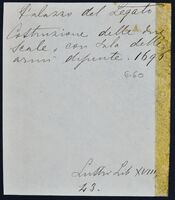 Palazzo del Legato
Costruzione delle due
Scale, con Sala delle
armi dipinte. 1696
660
Lustro Lib XVIII,
43.